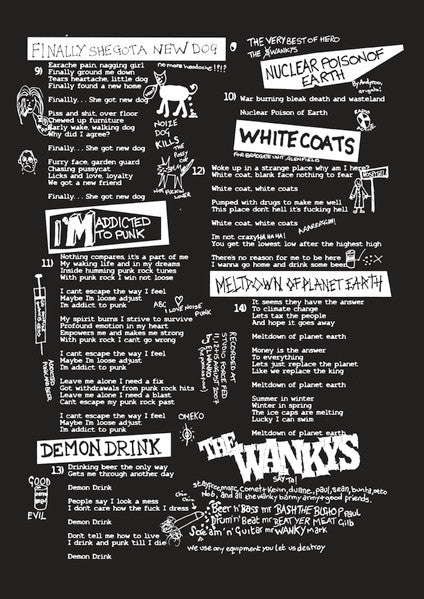 FINALLY SHE GOT A NEW DOG
9)
Earache pain nagging girl
Finally ground me down
Tears heartache, little dog
Finally found a new home
Finallly... She got new dog
Piss and shit, over floor
Chewed up furniture
Early wake, walking dog
Why did I agree?
Finally... She got new dog
Furry face, garden guard
Chasing pussycat
Licks and love, loyalty
We got a new friend
Finally... She got new dog
no more headache!?!?
NOIZE
DOG
KILLS
THE
PUSSY
CAT
I'M ADDICTED
TO PUNK
11)
Nothing compares, it's a part of me
My waking life and in my dreams
Inside humming punk rock tunes
With punk rock I win not loose
I cant escape the way I feel
Maybe Im loose adjust
Im addict to punk
My spirit burns I strive to survive
Profound emotion in my heart
Empowers me and makes me strong
With punk rock I can't go wrong
I cant escape the way I feel
Maybe Im loose adjust
Im addict to punk
Leave me alone I need a fix
Got withdrawals from punk rock hits
Leave me alone I need a blast
Cant escape my punk rock past
I cant escape the way I feel
Maybe Im loose adjust
Im addict to punk
ABC
I LOVE NOISE
PUNK
OMEKO
DEMON DRINK
13)
Drinking beer the only way
Gets me through another day
Demon Drink
People say I look a mess
I dont care how the fuck I dress
Demon Drink
Dont tell me how to live
I drink and punk 'till I die
Demon Drink
GOOD
EVIL
THE VERY BEST OF HERO
THE WANKYS
NUCLEAR POISON OF
EARTH
10)
War burning bleak death and wasteland
Nuclear Poison of Earth
WHITE COATS
12)
Woke up in a strange place why am I here?
White coat blank face nothing to fear
White coat, white coats
Pumped with drugs to make me well
This place don't hell it's fucking hell
White coat, white coats
I'm not crazy HA HA HA!
You get the lowest low after the highest high
There's no reason for me to be here
I wanna go home and drink some beer
HOSPITAL
MELTDOWN OF PLANET EARTH
14)
It seems they have the answer
To climate change
Lets tax the people
And hope it goes away
Meltdown of planet earth
Money is the answer
To everything
Lets just replace the planet
Like we replace the king
Meltdown of planet earth
Summer in winter
Winter in spring
The ice caps are melting
Lucky I can swim
Meltdown of planet earth
RECORDED AT
STUDIO FORCE FED
THE WANKYS
SAY TO!
Beer 'n' Bass mr BASH THE BISHOP Paul
Drum 'n' Beat mr BEAT YER MEAT Gilb
Scream 'n' Guitar mr WANKY Mark
we use any equipment you let us destroy